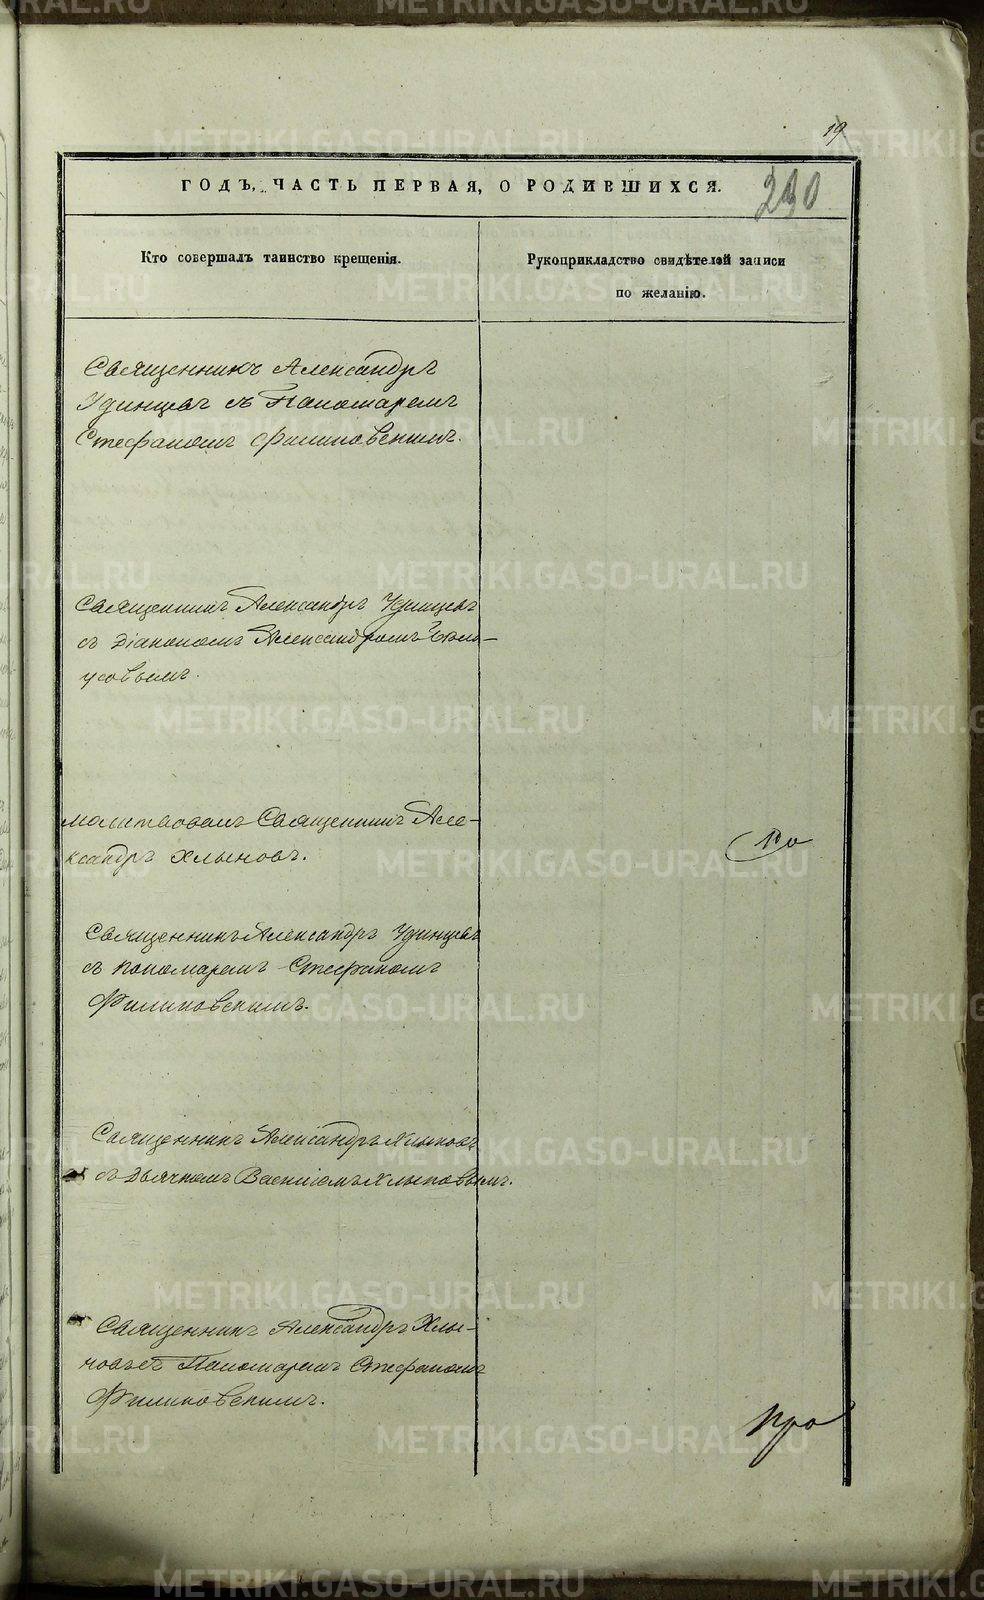 19
ГОДЪ, ЧАСТЬ ПЕРВАЯ, О РОДИВШИХСЯ.
Кто совершалъ таинство крещенія.
Рукоприкладство свидѣтелей записи
по желанію.
Священникъ Александръ
Удинцевъ съ Пономаремъ
Стефаномъ Филиповскимъ.
Священникъ Александръ Удинцевъ
съ Діакономъ Александромъ
усовымъ.
молитвовалъ Священникъ Але-
ксандръ Хлыновъ.
Священникъ Александръ Удинцевъ
съ пономаремъ Стефаномъ
Филиповскимъ.
Священникъ Александръ Хлыновъ
съ Дьячкомъ Василіемъ Хлыновымъ.
Священникъ Александръ Хлы-
новъ съ Пономаремъ Стефаномъ
Филиповскимъ.
METRIKI.GASO-URAL.RU